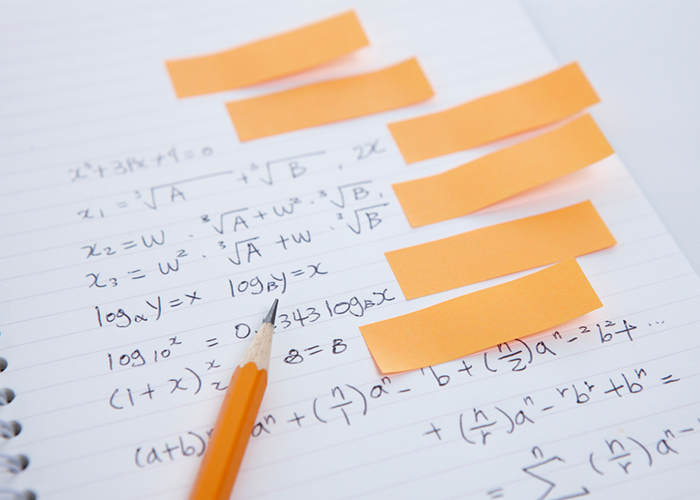 x³+3Px+q=0
x₁ = ³√A + ³√B , 2x
x₂ = W · ³√A + W² · ³√B ,
x₃ = W² · ³√A + W · ³√B
log_α y = x log_β y = x
log 10^x = 0. 343 log_β x
(1+x)^x 8=B
(a+b) a^n + (n/1) a^n- b + (n/2) a^n-2 b² + ...
+ (n/r) a^n-r b^r + b^n =
= Σ^n (n/r) a^n-